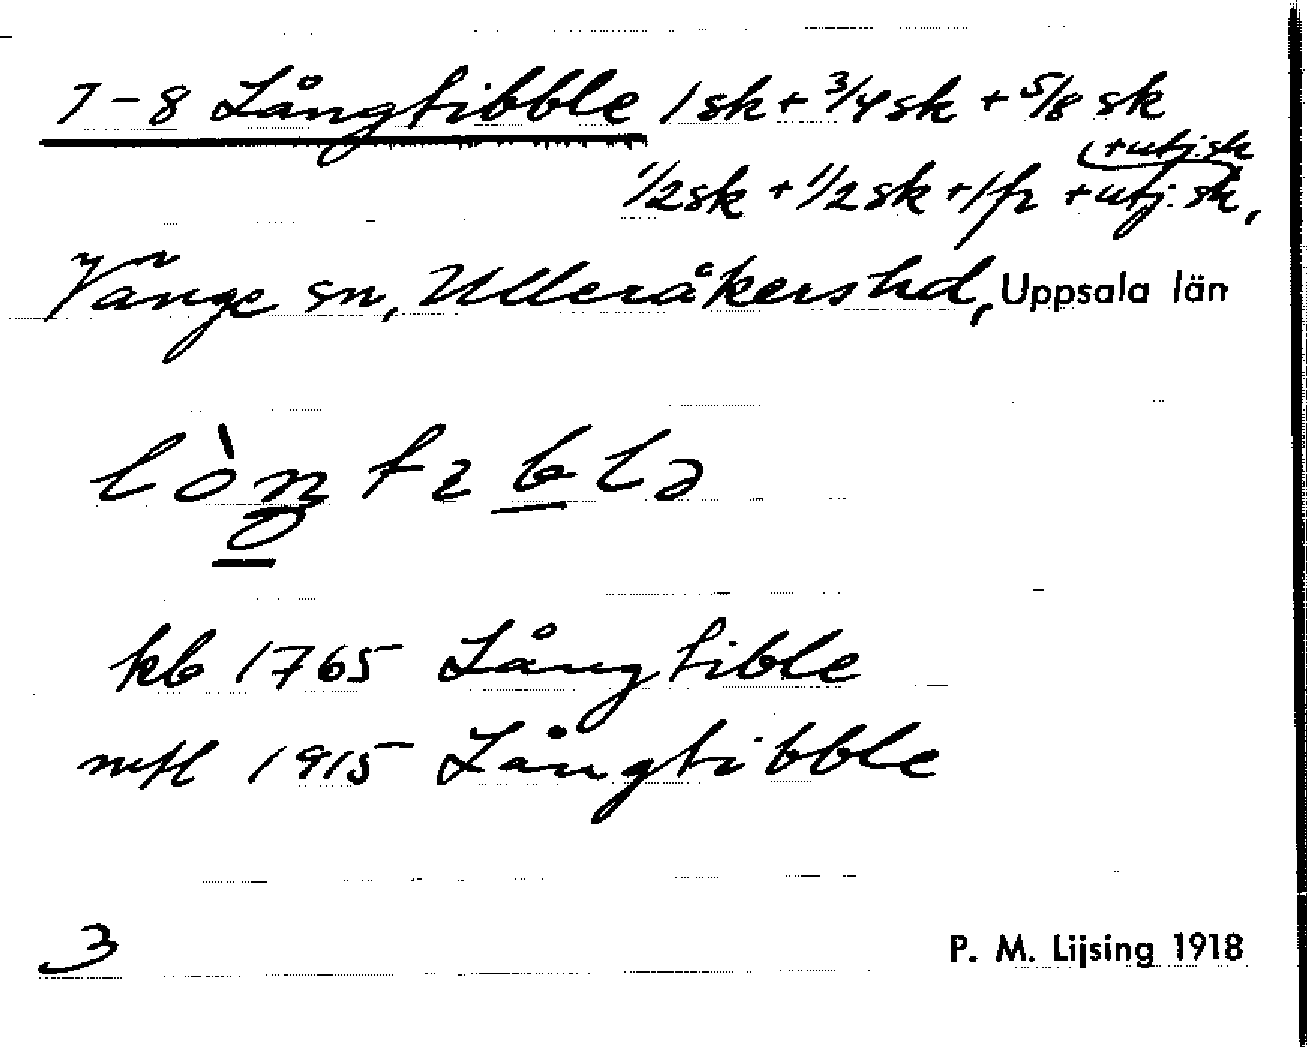 7-8 Långtibble 1 sk + 3/4 sk + 5/8 sk
(+utj. sk
1/2 sk + 1/2 sk + 1 fr + utj. sk,
Vänge sn, Ulleråkers hd, Uppsala län
kb 1765 Långtible
1915 Långtibble
3
P. M. Lijsing 1918